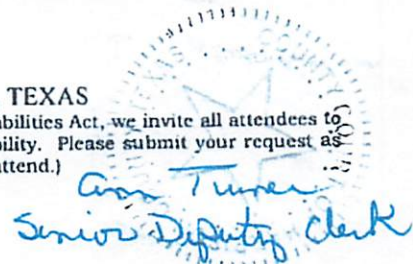 TEXAS
COUNTY
TEXAS
abilities Act, we invite all attendees to
bility. Please submit your request as
attend.)
Ann Turner
Senior Deputy Clerk